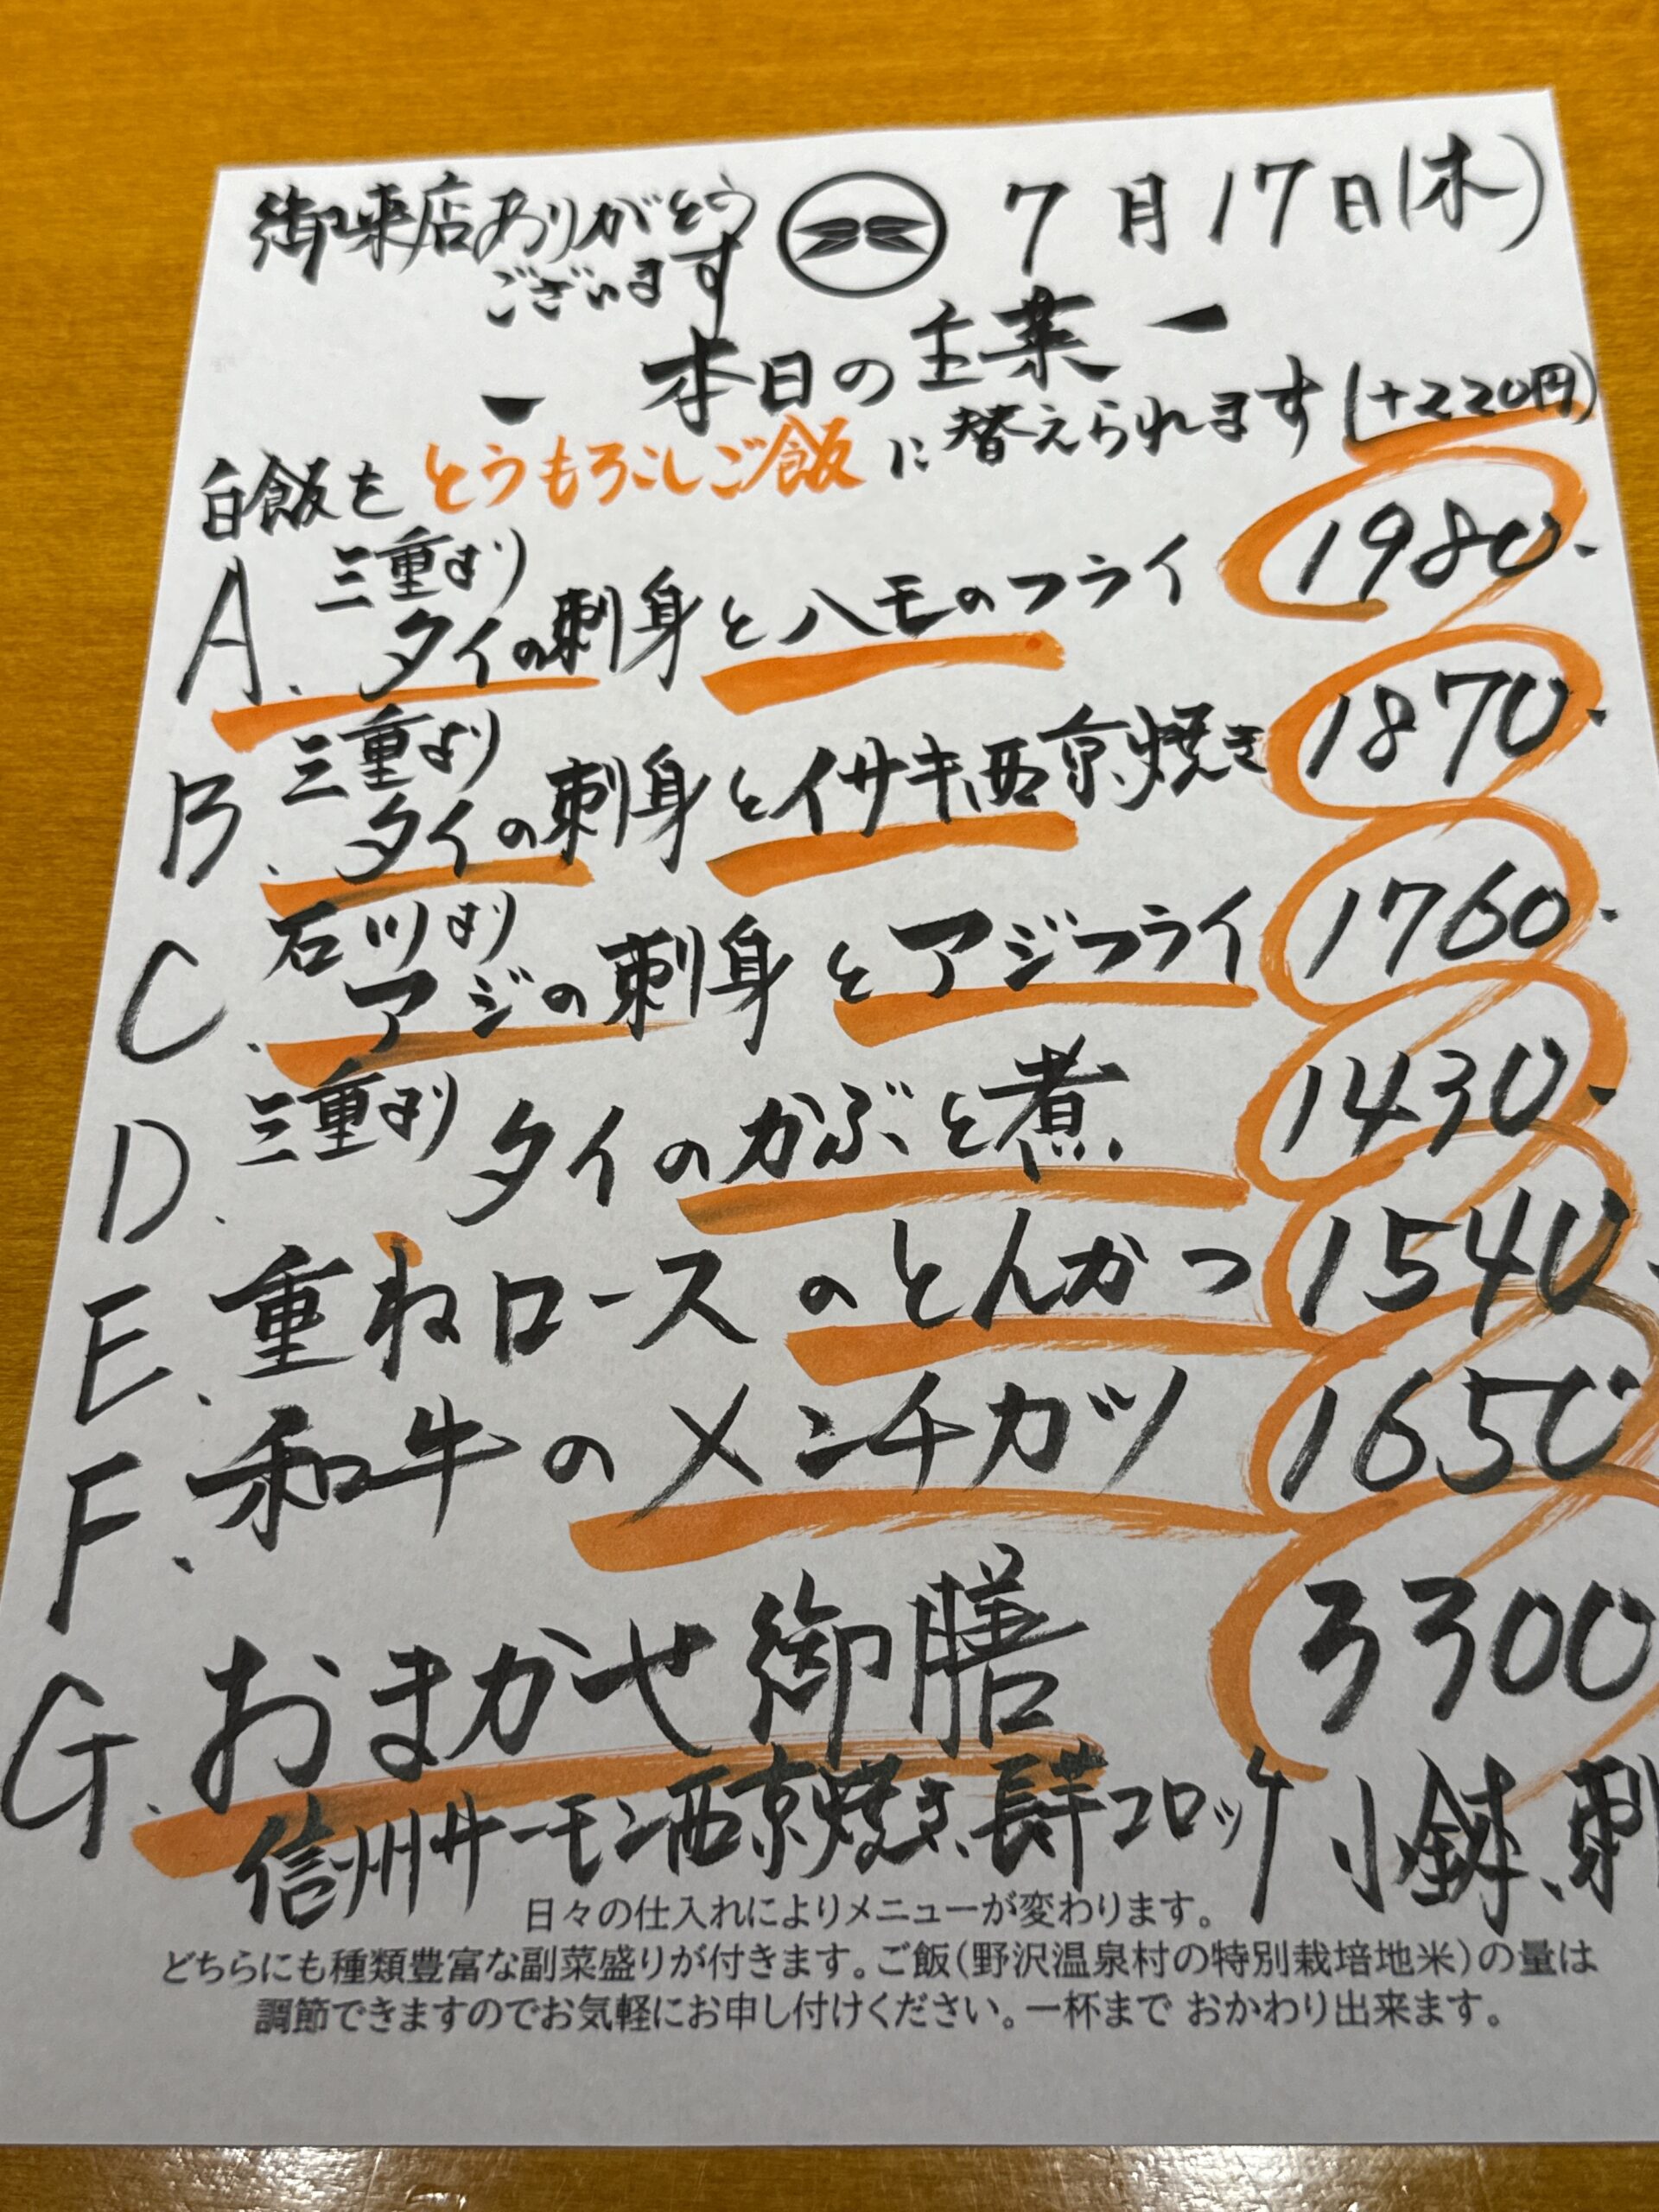 御来店ありがとう
ございます
7月17日(木)
ー 本日の主菜 ー
白飯を とうもろこしご飯 に替えられます(+220円)
三重より
A. タイの刺身とハモのフライ 1980.
三重より
B. タイの刺身とイサキ西京焼き 1870.
石川より
C. アジの刺身とアジフライ 1760.
D. 三重より タイのかぶと煮 1430.
E. 重ねロースのとんかつ 1540.
F. 和牛のメンチカツ 1650
G. おまかせ御膳 3300
信州サーモン西京焼き、長芋コロッケ 小鉢、刺
日々の仕入れによりメニューが変わります。
どちらにも種類豊富な副菜盛りが付きます。ご飯(野沢温泉村の特別栽培地米)の量は
調節できますのでお気軽にお申し付けください。一杯まで おかわり出来ます。